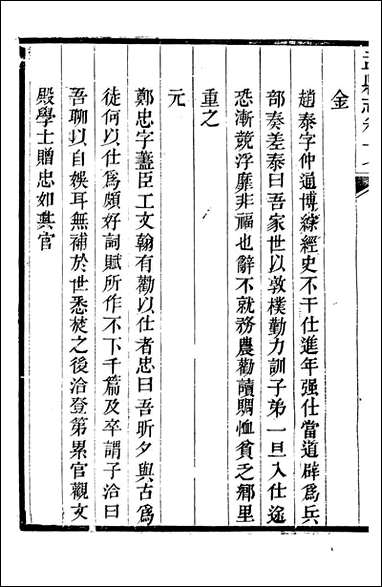 金
趙泰字仲通博綜經史不干仕進年强仕當道辟爲兵
部奏差泰曰吾家世以敦樸勤力訓子弟一旦入仕途
恐漸競浮靡非福也辭不就務農勸讀賙恤貧乏鄉里
重之
元
鄭忠字藎臣工文翰有勸以仕者忠曰吾昕夕與古爲
徒何以仕爲頗好詞賦所作不下千篇及卒謂子洽曰
吾聊以自娛耳無補於世悉焚之後洽登第累官觀文
殿學士贈忠如其官